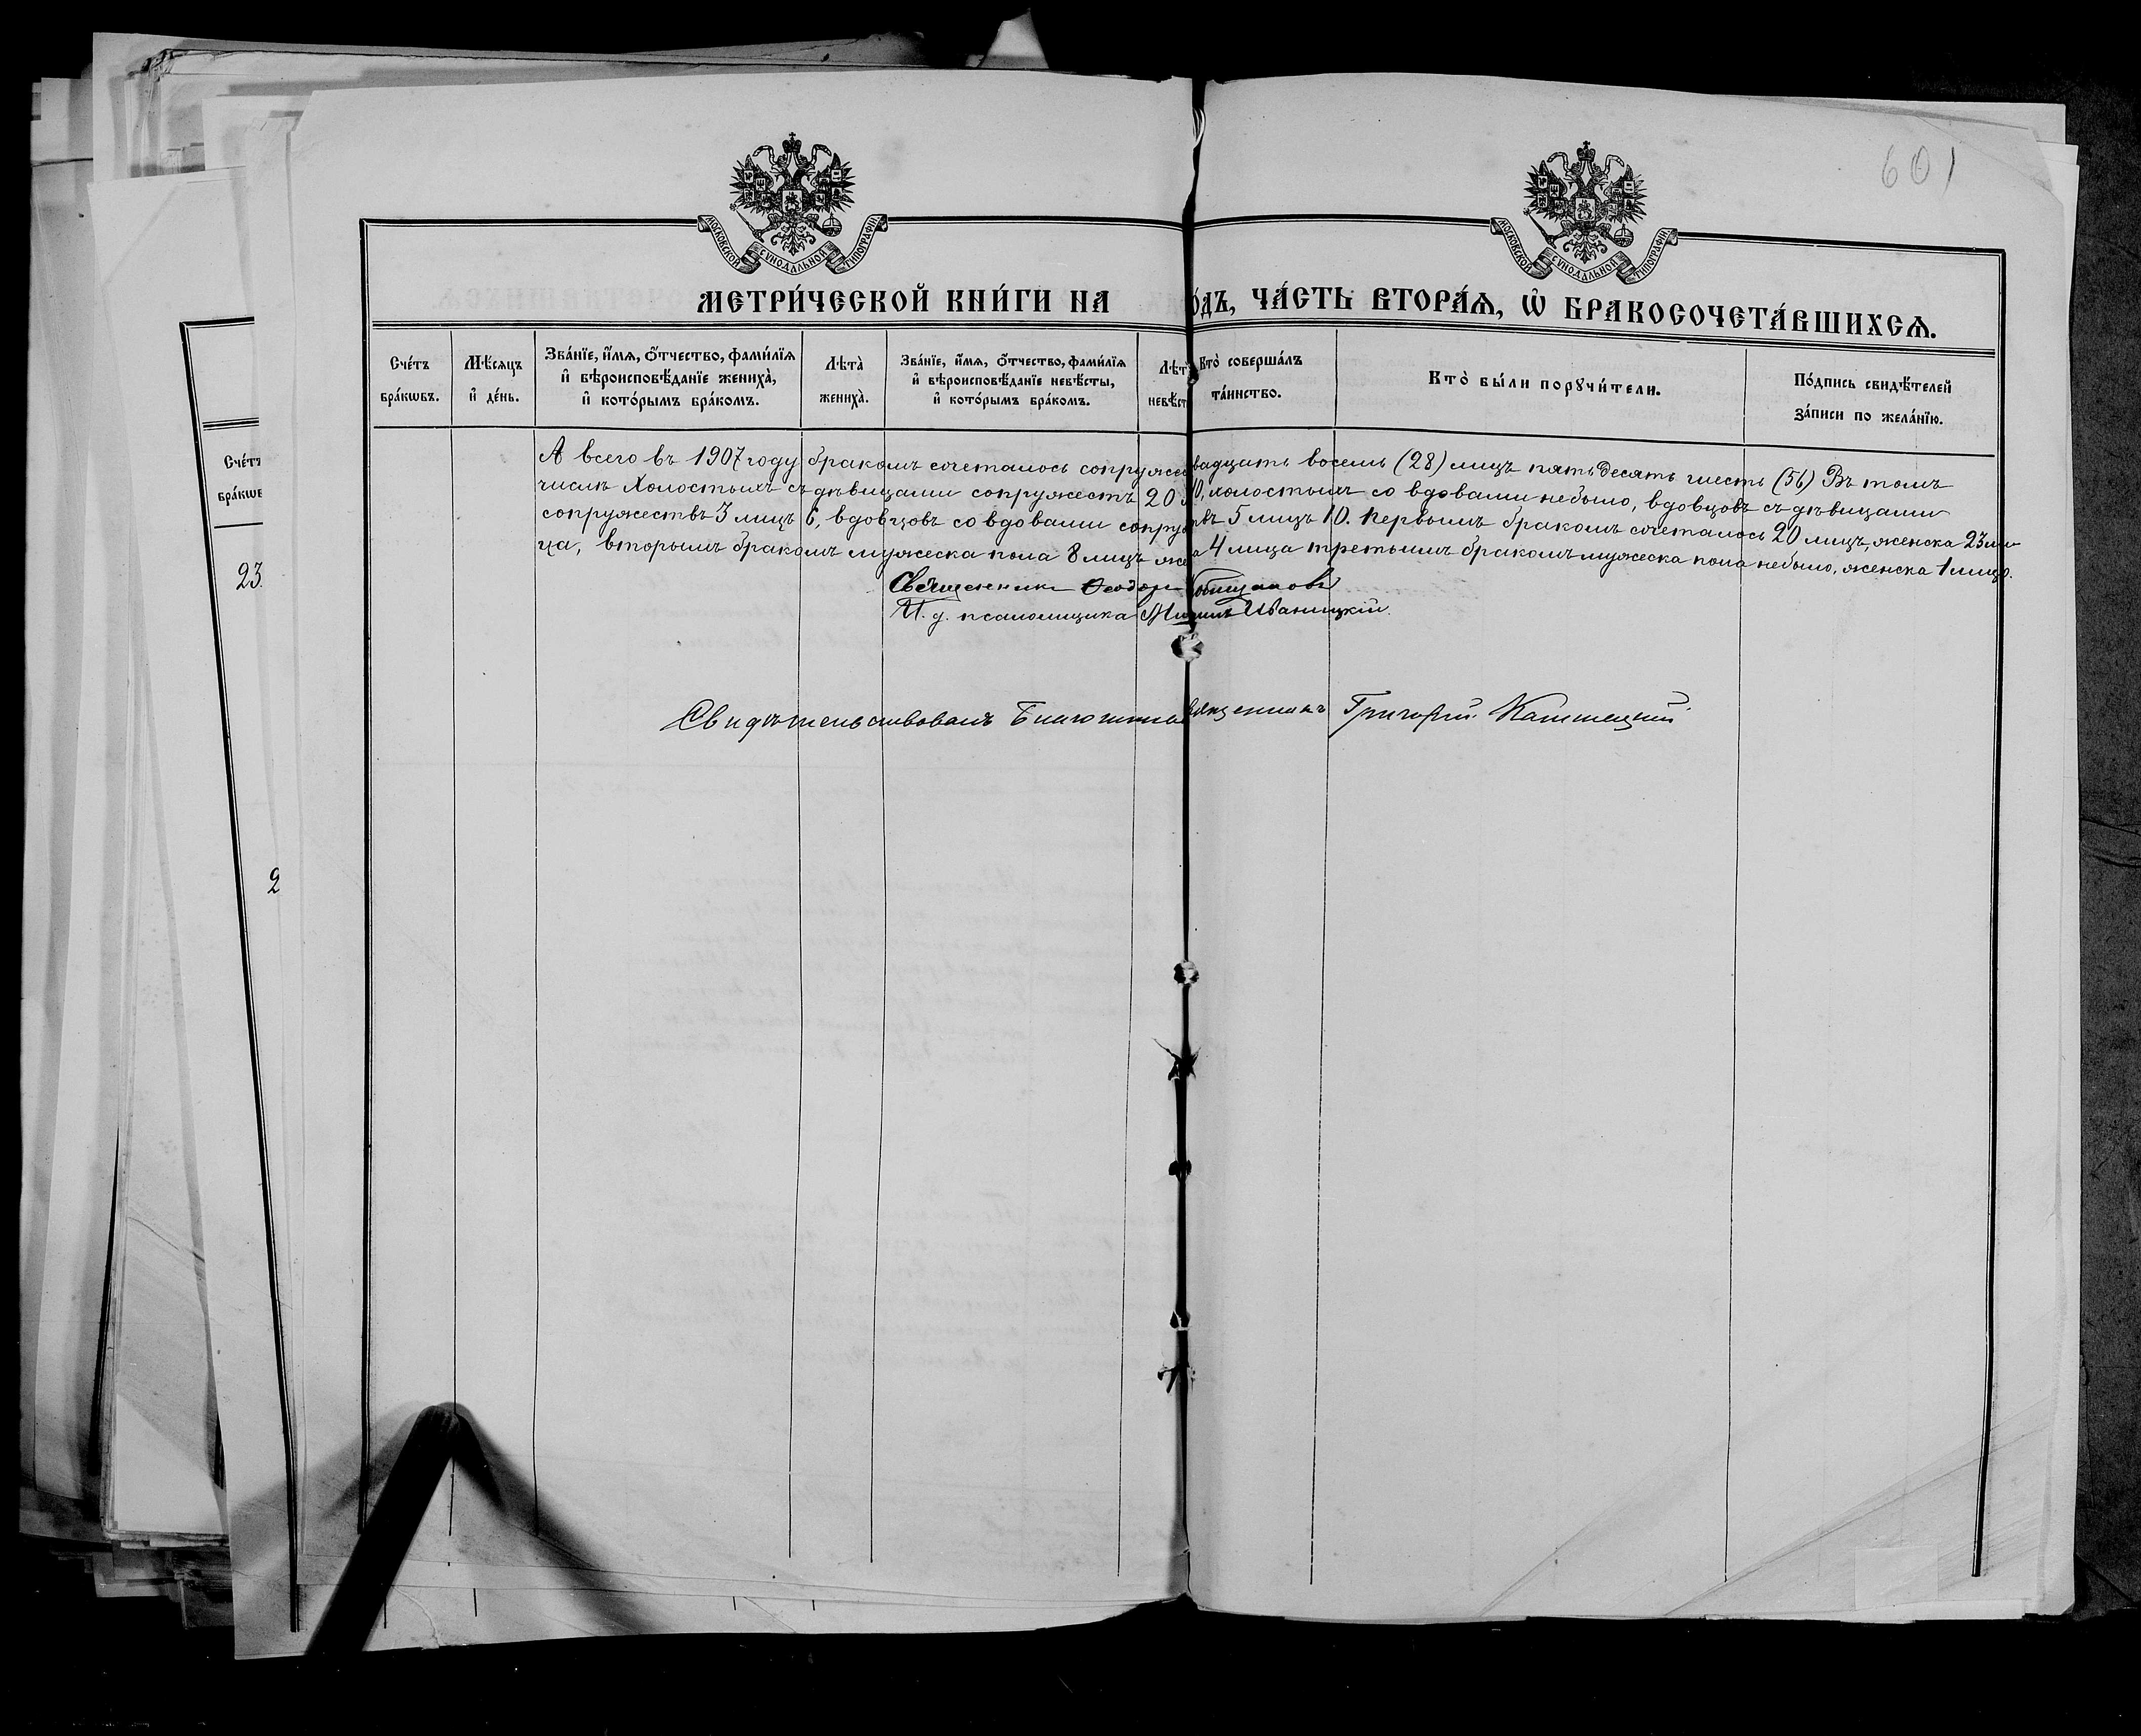 601
МОСКОВСКОЙ СѴНОДАЛЬНОЙ ТИПОГРАФІИ
МОСКОВСКОЙ СѴНОДАЛЬНОЙ ТИПОГРАФІИ
МЕТРИ́ЧЕСКОЙ КНИ́ГИ НА О́ДЪ, ЧА́СТЬ ВТОРА́Ѧ, Ѡ҆ БРАКОСОЧЕТА́ВШИХСѦ.
Сче́тъ бра́кѡвъ.
Мѣ́сѧцъ и҆ де́нь.
Зва́нїе, и҆́мѧ, ѻ҆́тчество, фами́лїѧ и҆ вѣроисповѣ́данїе жениха̀, и҆ кото́рымъ бра́комъ.
Лѣта̀ жениха̀.
Зва́нїе, и҆́мѧ, ѻ҆́тчество, фами́лїѧ и҆ вѣроисповѣ́данїе невѣ́сты, и҆ кото́рымъ бра́комъ.
Лѣт невѣ́ст
Кто̀ соверша́лъ та́инство.
Кто̀ бы́ли порꙋчи́тели.
По́дпись свидѣ́телей за́писи по жела́нїю.
А всего въ 1907 году бракомъ сочеталось сопружес вадцать восемь (28) лицъ пятьдесятъ шесть (56) Въ томъ
числѣ Холостыхъ съ дѣвицами сопружествъ 20 0, холостыхъ со вдовами небыло, вдовцовъ съ дѣвицами
сопружествъ 3 лицъ 6, вдовцовъ со вдовами сопруж твъ 5 лицъ 10. Первымъ бракомъ сочеталось 20 лицъ, женска 23 ли
ца, вторымъ бракомъ мужеска пола 8 лицъ же а 4 лица третьимъ бракомъ мужеска пола небыло, женска 1 лицо.
Священникъ Ѳеодоръ
И. д. псаломщика Иваницкій.
Свидѣтельствовалъ вященникъ Григорій
Сче́т
бра́кѡв
23.
2